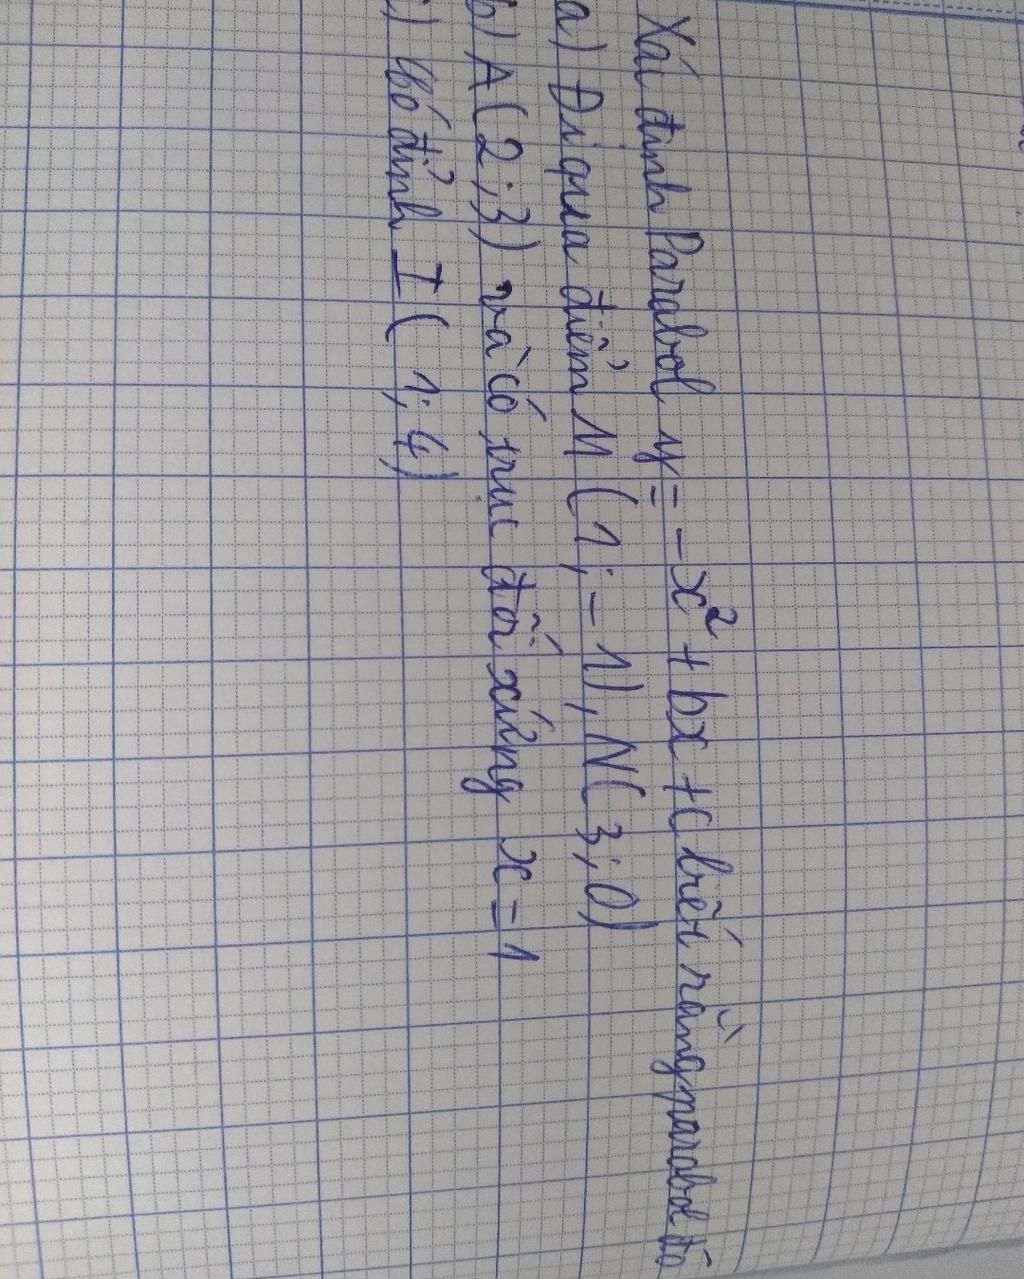 Xác định Parabol y = -x² + bx + c biết rằng parabol đó
a) Đi qua điểm M (1; -1), N(3; 0)
b) A(2; 3) và có trục đối xứng x = 1
c) Có đỉnh I(1; 4)